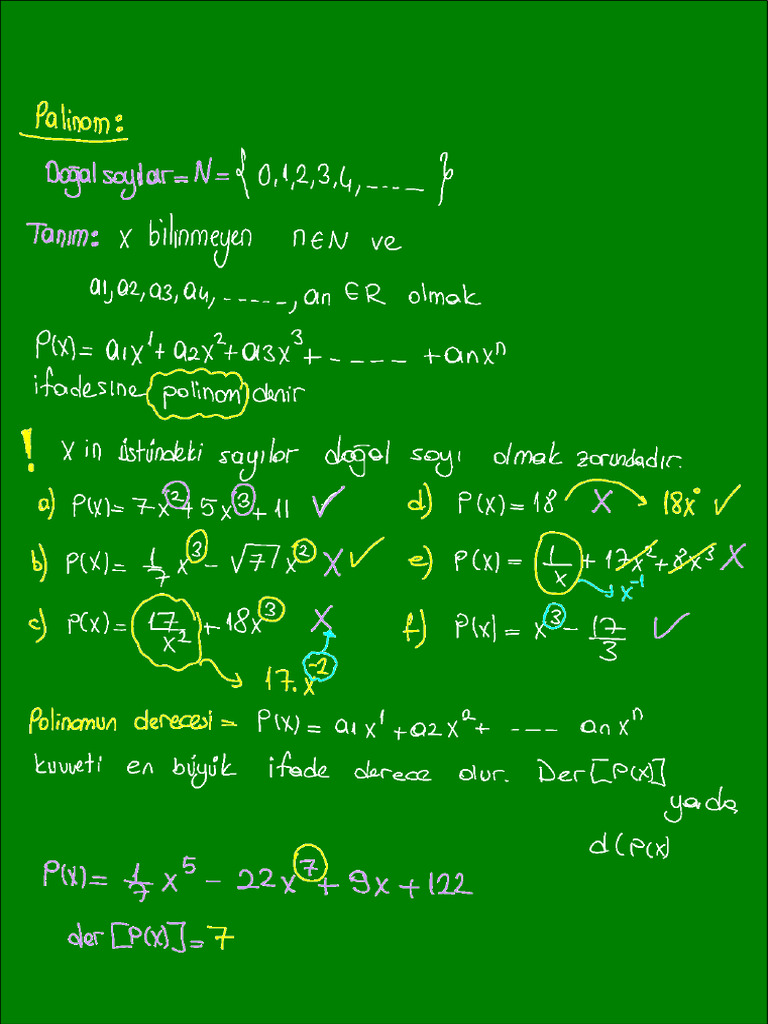 Palinom:
Doğal sayılar = N = { 0,1,2,3,4, ----- }
Tanım: x bilinmeyen n∈N ve
a1, a2, a3, a4, -----, an ∈R olmak
P(x) = a1x¹ + a2x² + a3x³ + ----- + anxⁿ
ifadesine polinom denir
! x in üstündeki sayılar doğal sayı olmak zorundadır.
a) P(x) = 7x² + 5x³ + 11 ✓
d) P(x) = 18 X → 18x⁰ ✓
b) P(x) = 1/7 x³ - √7 x² X ✓
e) P(x) = 1/x + 17x² + 8x³ X
→ x⁻¹
c) P(x) = 17/x² + 18x³ X
f) P(x) = x³ - 17/3 ✓
→ 17.x⁻²
Polinamun derecesi = P(x) = a1x¹ + a2x² + --- anxⁿ
kuvveti en büyük ifade derece olur. Der [P(x)]
yada
d(P(x)
P(x) = 1/7 x⁵ - 22x⁷ + 9x + 122
der [P(x)] = 7